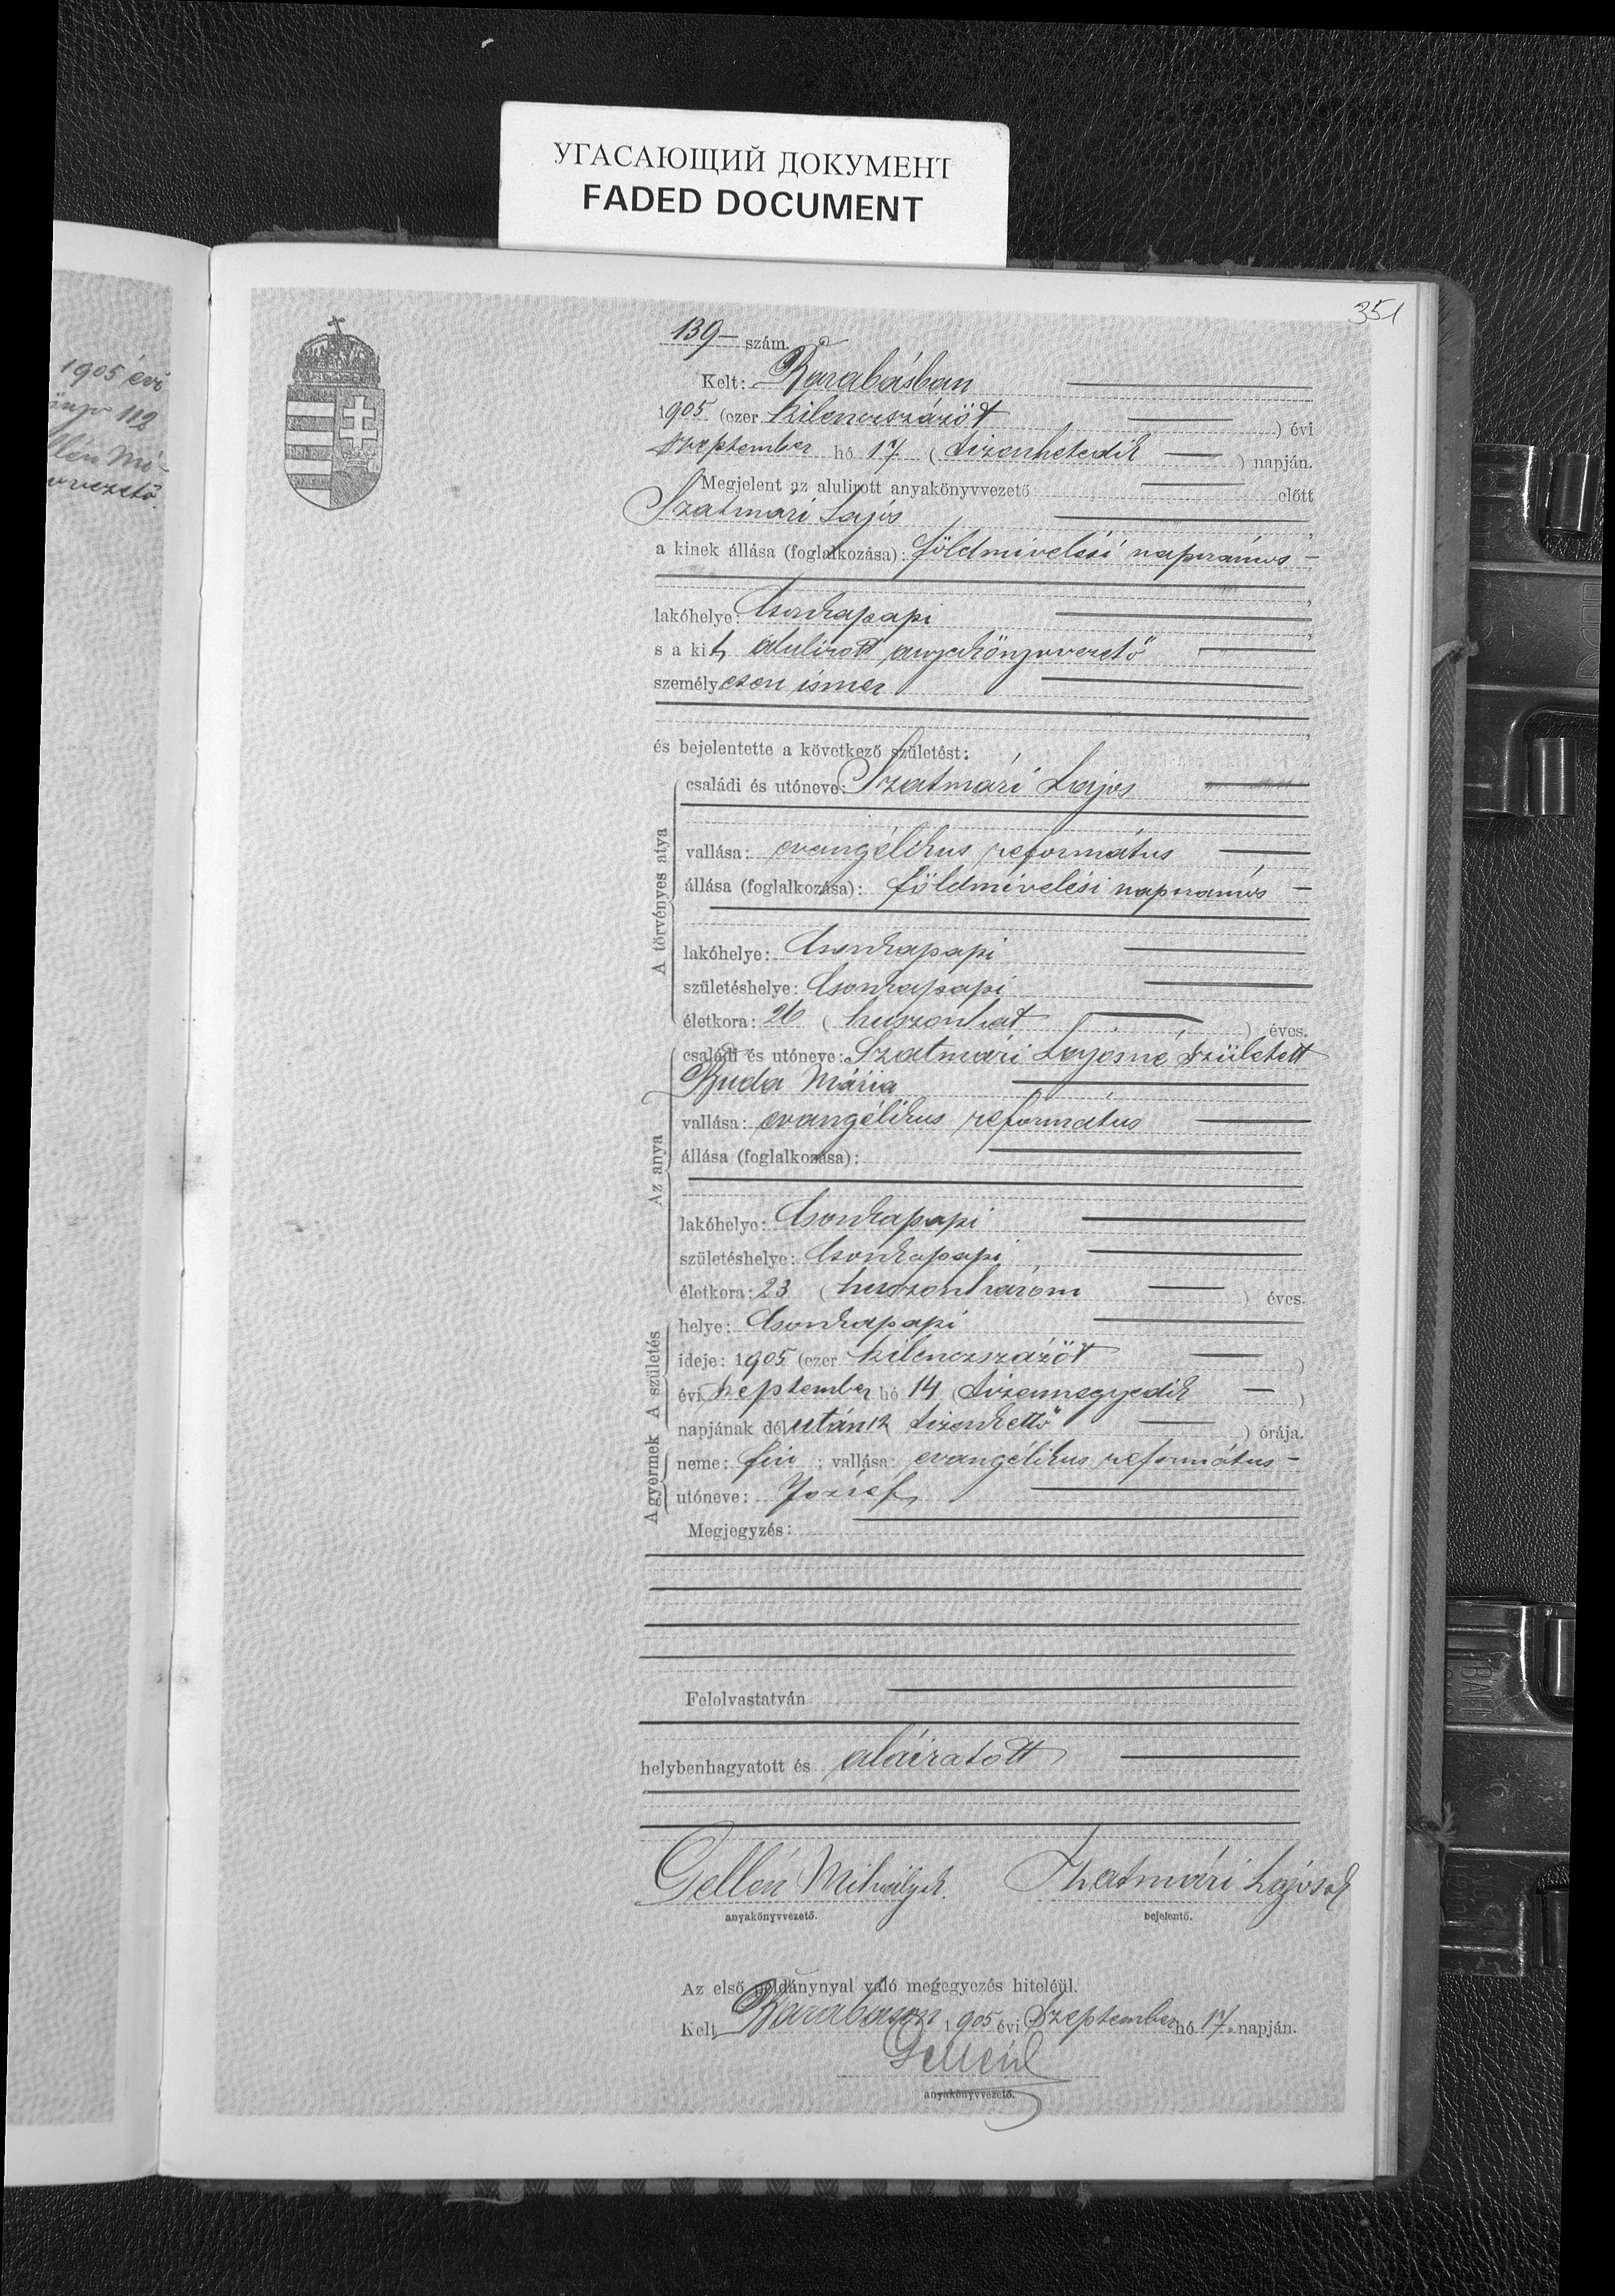 УГАСАЮЩИЙ ДОКУМЕНТ
FADED DOCUMENT
351
1905 évi
112
139 szám.
Kelt: Barabásban
1905 (ezer kilenczszázöt ) évi
szeptember hó 17 ( tizenhetedik ) napján.
Megjelent az alulirott anyakönyvvezető előtt
Szatmári Lajos
a kinek állása (foglalkozása): földmivelési napszámos
lakóhelye: Csonkapapi
s a kit alulirott anyakönyvvezető
személyesen ismer
és bejelentette a következő születést:
A törvényes atya
családi és utóneve: Szatmári Lajos
vallása: evangélikus református
állása (foglalkozása): földmivelési napszámos
lakóhelye: Csonkapapi
születéshelye: Csonkapapi
életkora: 26 ( huszonhat ) éves.
Az anya
családi és utóneve: Szatmári Lajosné, született
Buda Mária
vallása: evangélikus református
állása (foglalkozása):
lakóhelye: Csonkapapi
születéshelye: Csonkapapi
életkora: 23 ( huszonhárom ) éves.
A születés
helye: Csonkapapi
ideje: 1905 (ezer kilenczszázöt )
évi szeptember hó 14 ( tizennegyedik )
napjának délután 12 tizenkettő ) órája.
A gyermek
neme: fiu ; vallása: evangélikus református
utóneve: József
Megjegyzés:
Felolvastatván
helybenhagyatott és aláiratott
Gellén Mihály k. Szatmári Lajos sk
anyakönyvvezető. bejelentő.
Az első példánynyal való megegyezés hiteléül.
Kelt Barabáson 1905 évi Szeptember hó 17. napján.
anyakönyvvezető.